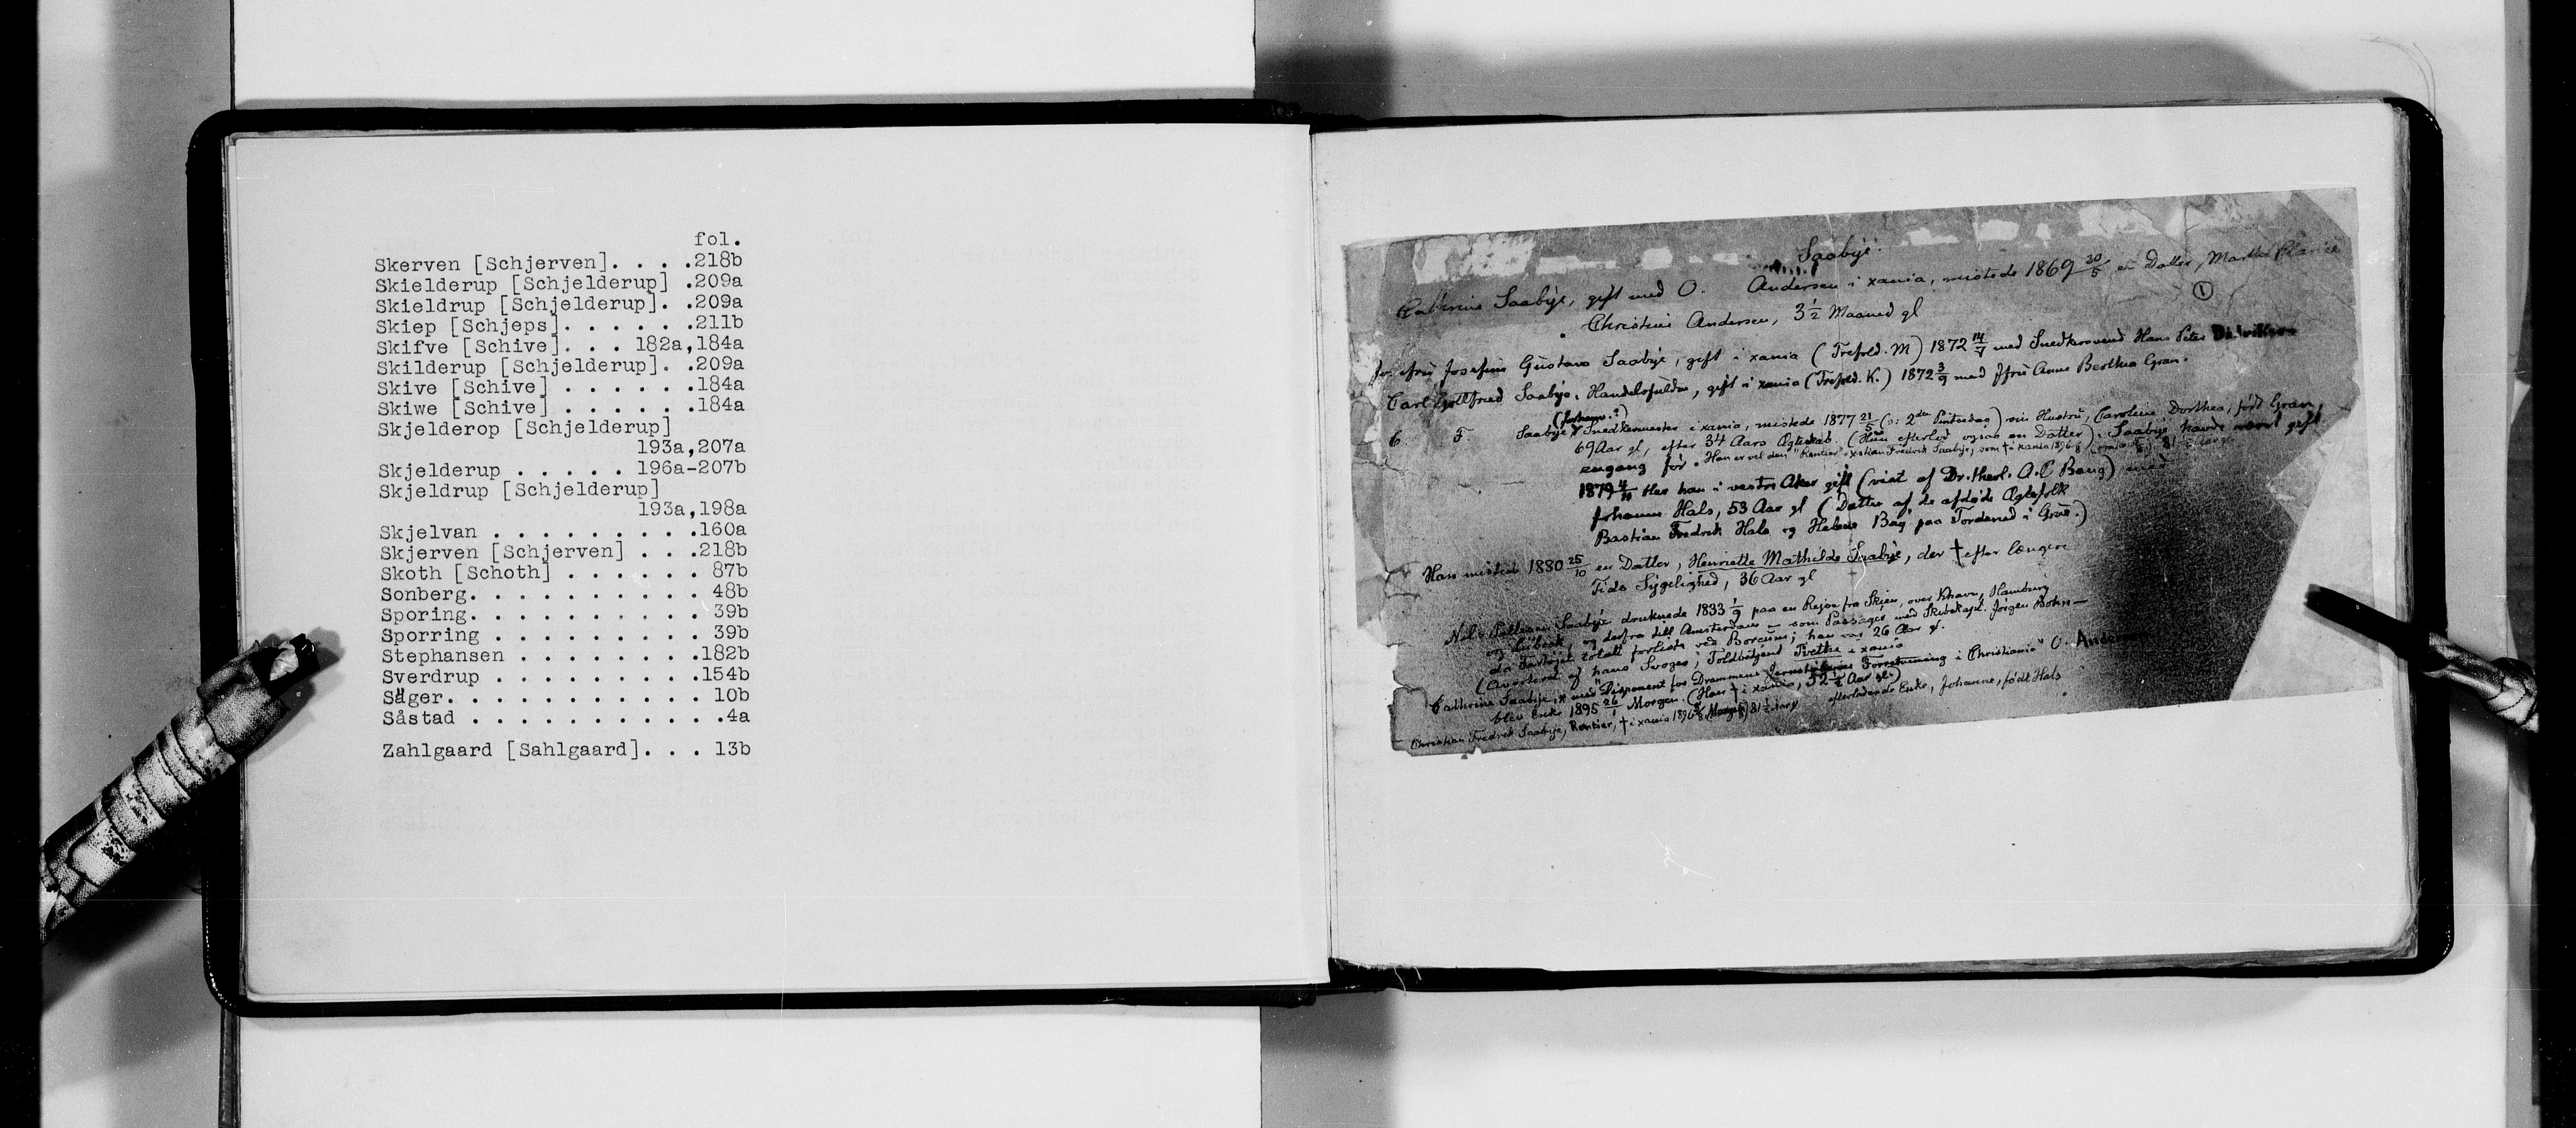 fol.
Skerven [Schjerven]. . . .218b
Skielderup [Schjelderup] .209a
Skieldrup [Schjelderup]. .209a
Skiep [Schjeps]. . . . . .211b
Skifve [Schive]. . . 182a,184a
Skilderup [Schjelderup]. .209a
Skive [Schive] . . . . . .184a
Skiwe [Schive] . . . . . .184a
Skjelderop [Schjelderup]
193a,207a
Skjelderup . . . . . 196a-207b
Skjeldrup [Schjelderup]
193a,198a
Skjelvan . . . . . . . . .160a
Skjerven [Schjerven] . . .218b
Skoth [Schoth] . . . . . . 87b
Sonberg. . . . . . . . . . 48b
Sporing. . . . . . . . . . 39b
Sporring . . . . . . . . . 39b
Stephansen . . . . . . . .182b
Sverdrup . . . . . . . . .154b
Säger. . . . . . . . . . . 10b
Såstad . . . . . . . . . . .4a
Zahlgaard [Sahlgaard]. . . 13b
Saabye.
Cathrine Saabye, gift med O. Andersen i xania, mistede 1869 30/5 en Datter, Martha
1
Christine Andersen, 3 1/2 Maaned gl
Josefine Gustava Saabye, gift i xania (Trefold. M) 1872 14/7 med Snedkersvend Hans Peter
Carl Gottfried Saabye, Handelsfuldm, gift i xania (Trefold. K.) 1872 3/9 med Jfru Anne Berthea Gran.
C. F. Saabye, Snedkermester i xania, mistede 1877 21/5 (: 2den Pintsedag) sin Hustru, Caroline Dorthea, født Gran,
69 Aar gl, efter 34 Aars Ægteskab. (Hun efterlod ogsaa en Datter). Saabye havde været gift
engang før. Han er vel den "Rentier" Christian Fredrik Saabye, som † i xania 1896
1879 4/11 blev han i vestre Aker gift (viet af Dr. theol. A. C Bang) med
Johanne Hals, 53 Aar gl (Datter af de afdøde Ægtefolk
Bastian Fredrik Hals og Helene Bay paa Tordenrud i Grue.)
Han mistede 1880 25/10 en Datter, Henriette Mathilde Saabye, der † efter længere
Tids Sygelighed, 36 Aar gl
Saabye druknede 1833 1/9 paa en Rejse fra Skien, over Khavn, Hamburg
og Lübeck, og derfra till Amsterdam – som Passager med Skibskapt. Jørgen Bohn –
da Fartøjet totalt forliste ved Borcum; han var 26 Aar gl.
(Averteret af hans Svoger, Toldbetjent Tvethe i xania
Cathrine Saabye, x med "Disponent for Drammens Jernstøberies Forretnuing i Christiania" O.
blev Enke 1895 26/1 Morgen. (Han † i xania, 52 1/2 Aar gl.)
Christian Fredrik Saabye, Rentier, † i xania 1896 81 1/2 Aar gl efterladende Enke, Johanne, født Hals